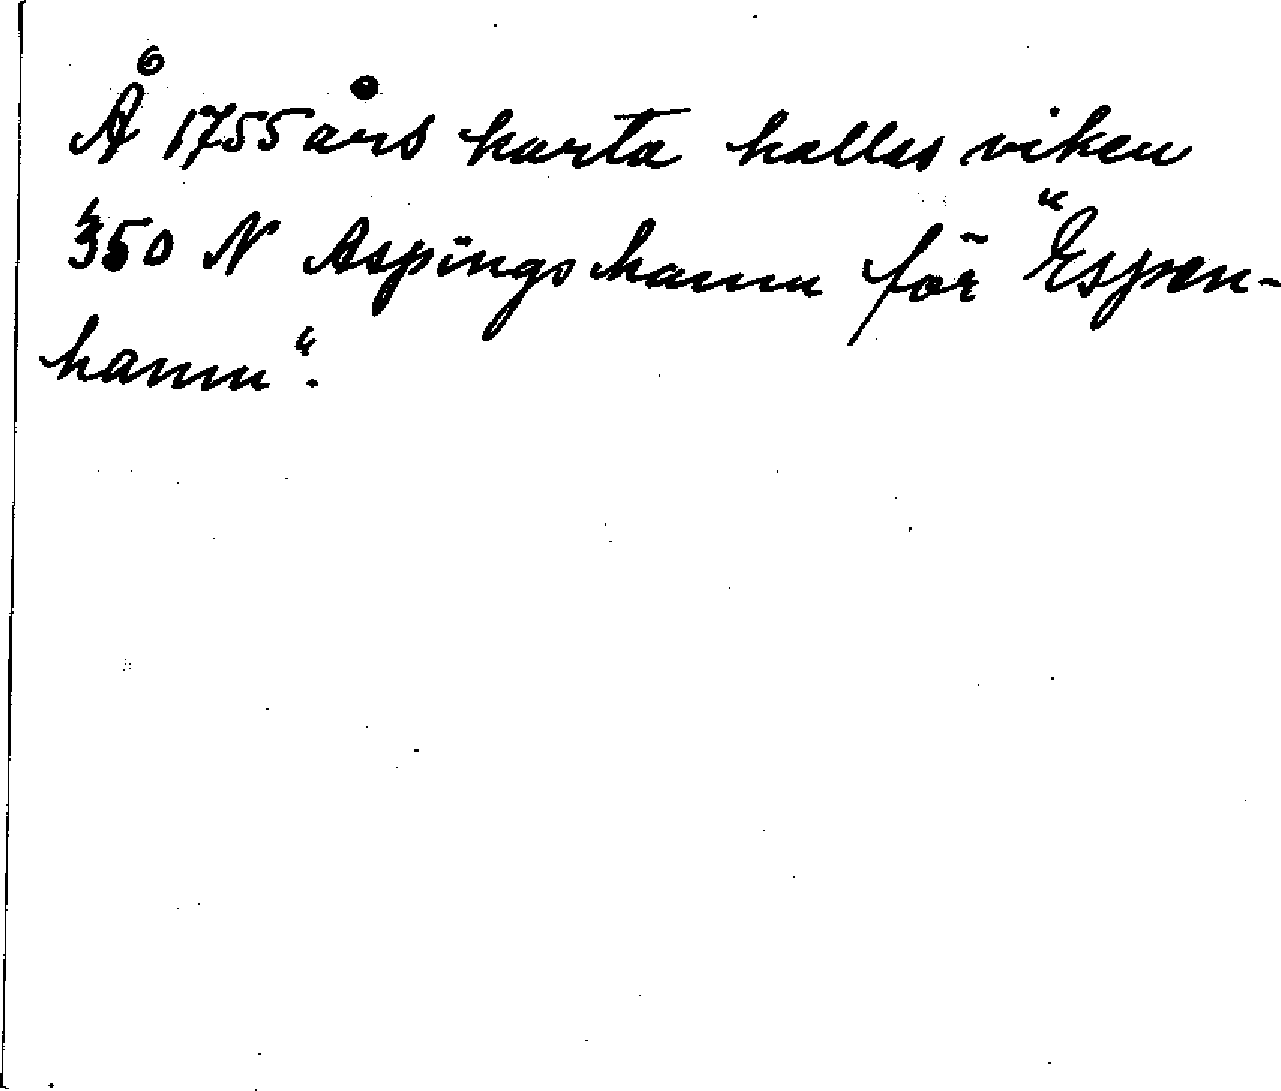 Å 1755 års karta kallas viken
350 N Aspingshamn för "Espen-
hamn".